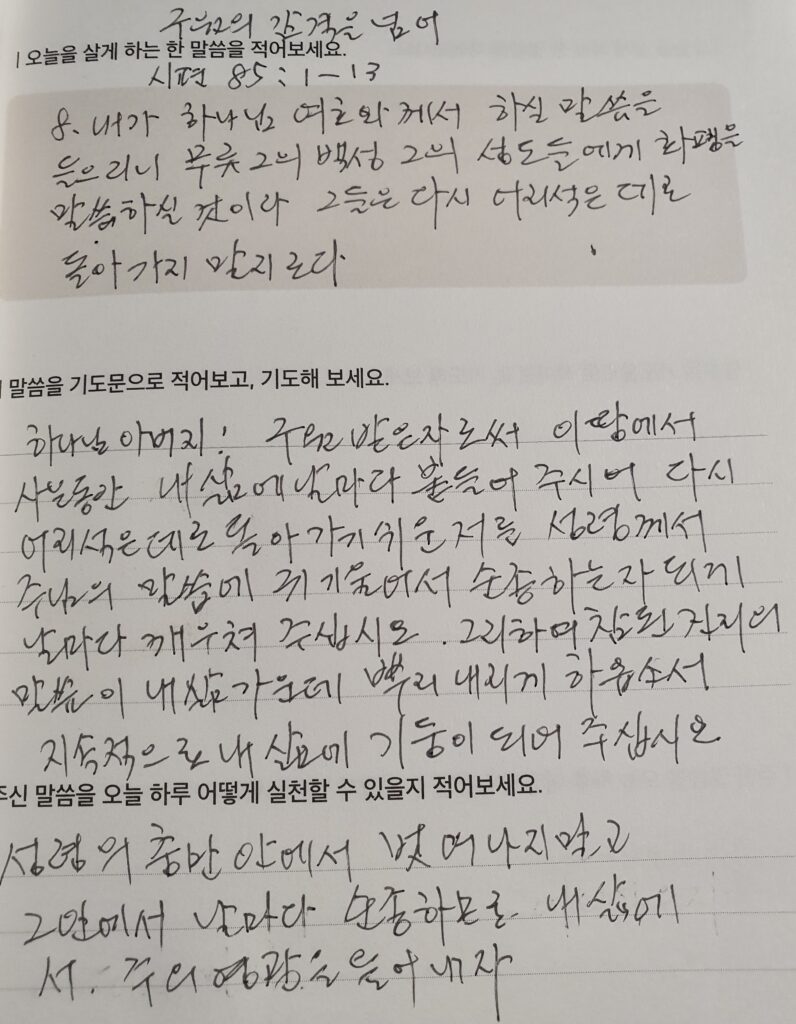 구원의 감격을 넘어
| 오늘을 살게 하는 한 말씀을 적어보세요.
시편 85 : 1 - 13
8. 내가 하나님 여호와께서 하실 말씀을
들으리니 무릇 그의 백성 그의 성도들에게 화평을
말씀하실 것이라 그들은 다시 어리석은 데로
돌아가지 말지로다
| 말씀을 기도문으로 적어보고, 기도해 보세요.
하나님 아버지! 구원 받은자로써 이 땅에서
사는동안 내 삶에 날마다 붙들어 주시어 다시
어리석은데로 돌아가기 쉬운 저를 성령께서
주님의 말씀에 귀 기울여서 순종하는자 되게
날마다 깨우쳐 주십시오. 그리하여 참된 진리의
말씀이 내 삶 가운데 뿌리 내리게 하옵소서
지속적으로 내 삶에 기둥이 되어 주십시오
주신 말씀을 오늘 하루 어떻게 실천할 수 있을지 적어보세요.
성령의 충만 안에서 벗어나지말고
그안에서 날마다 순종하므로 내 삶에
서. 주의 영광을 들어내자